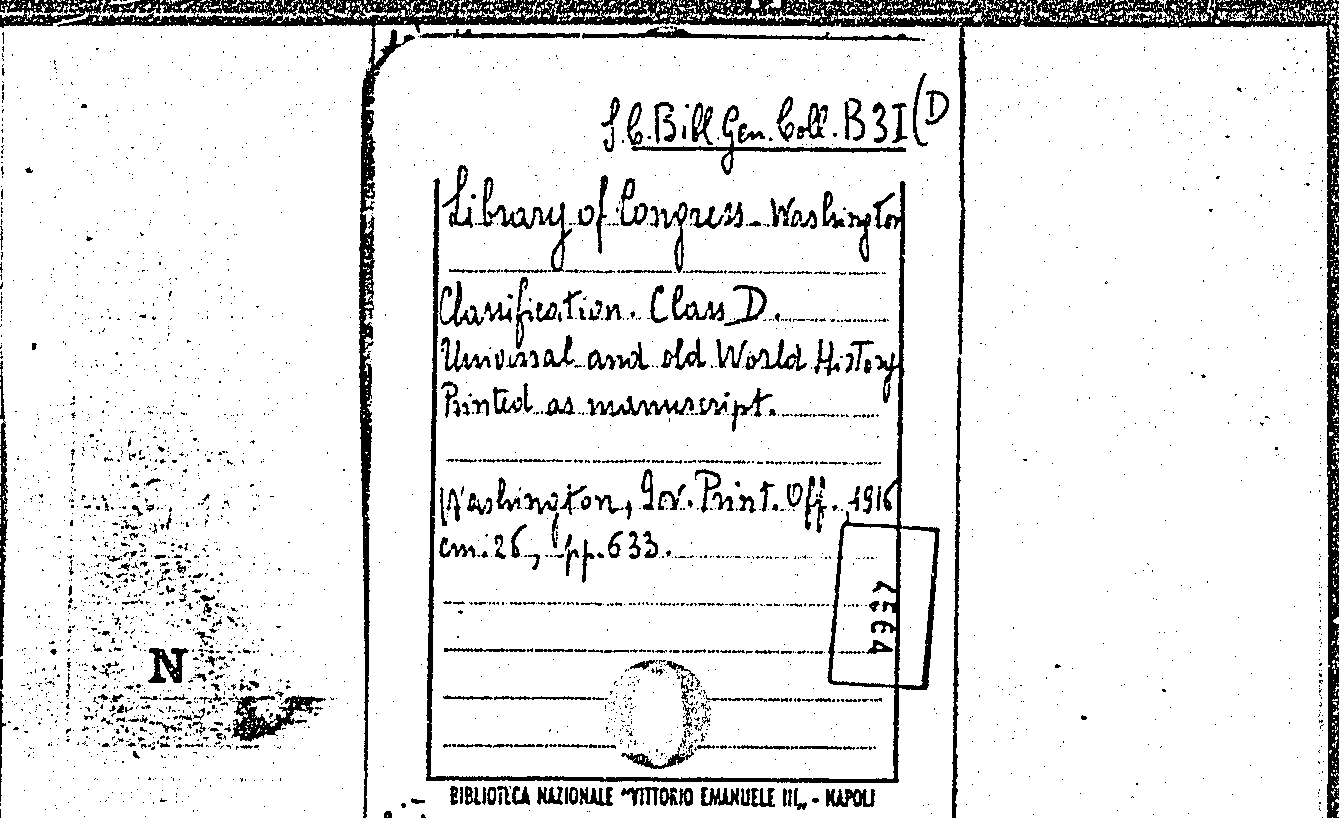 S.C. Bibl. Gen. Coll. B 3I (D
Library of Congress - Washington
Classification. Class D.
Universal and old World History
Printed as manuscript.
Washington, Gov. Print. Off., 1916
cm. 26, pp. 633.
4564
N
BIBLIOTECA NAZIONALE "VITTORIO EMANUELE III„ - NAPOLI